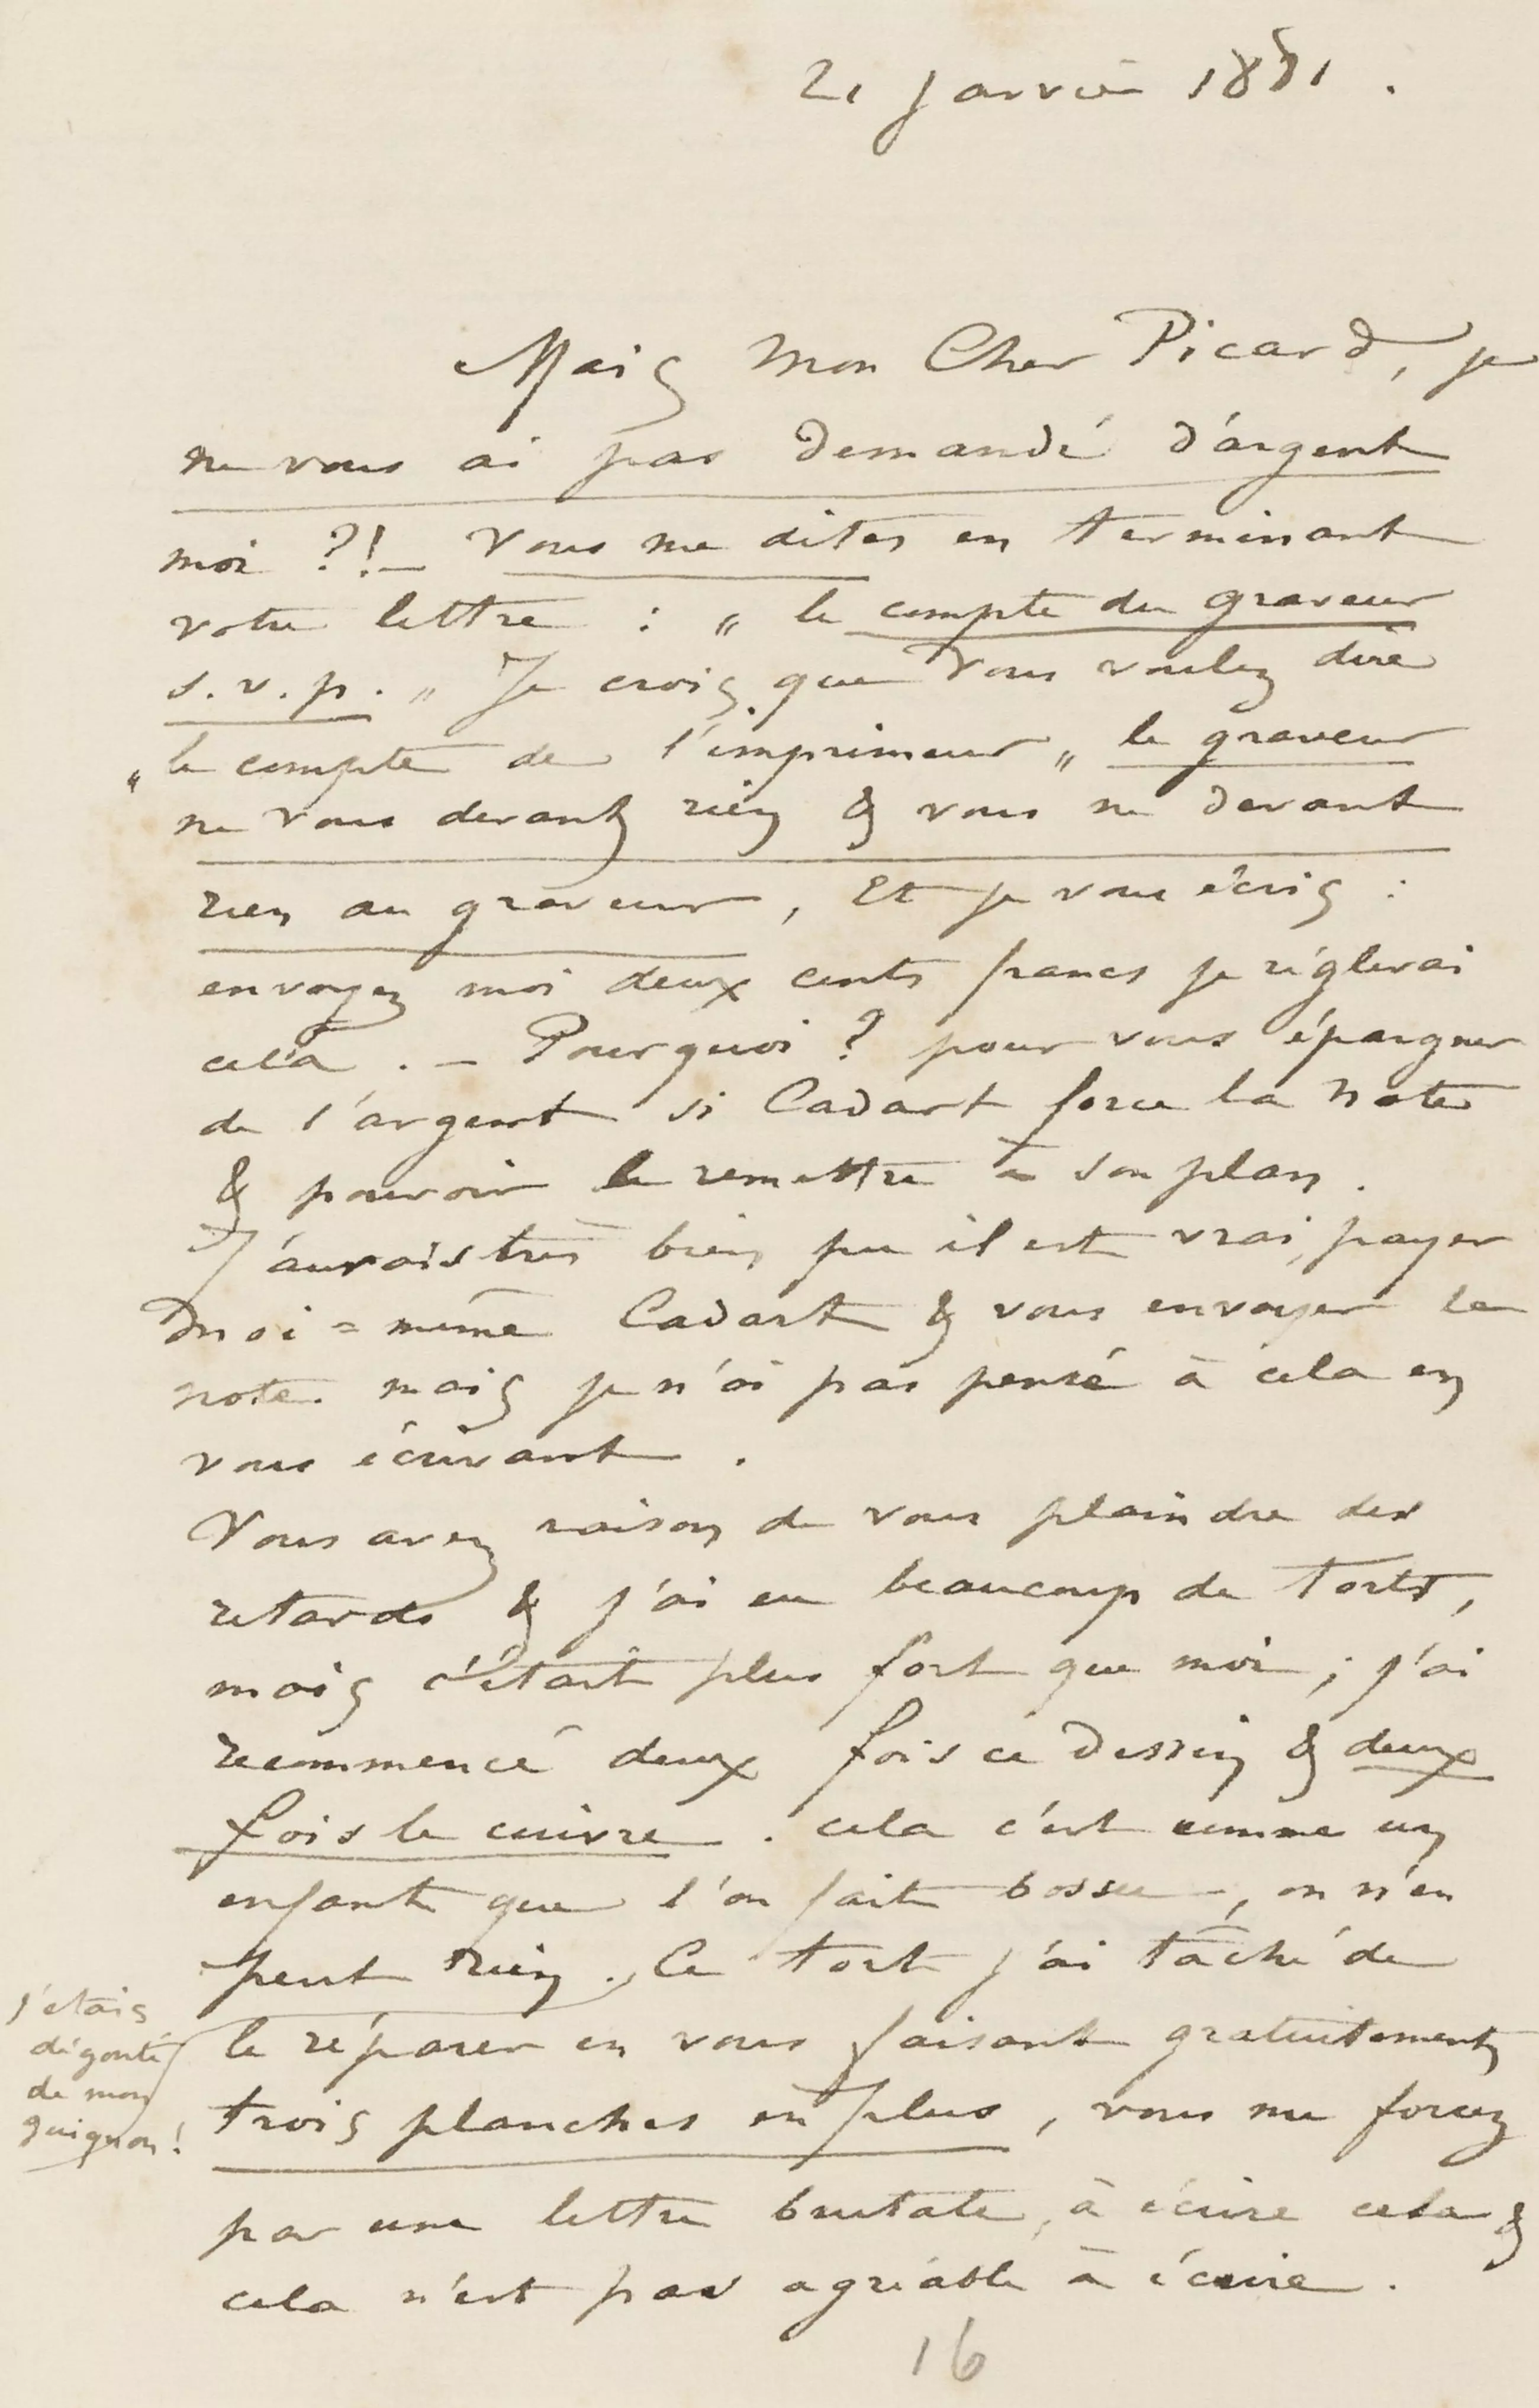 21 Janvier 1881.
Mais Mon Cher Picard, je
ne vous ai pas demandé d'argent
moi ?! – Vous me dites en terminant
votre lettre : " le compte du graveur
s. v. p. " Je crois que vous voulez dire
" le compte de l'imprimeur " le graveur
ne vous devant rien & vous ne devant
rien au graveur, Et je vous écris :
envoyez moi deux cents francs je règlerai
cela. – Pourquoi ? pour vous épargner
de l'argent si Cadart force la note
& pouvoir le remettre à son plan.
J'aurais très bien pu il est vrai, payer
moi=même Cadart & vous envoyer la
note. mais je n'ai pas pensé à cela en
vous écrivant.
Vous avez raison de vous plaindre des
retards & j'ai eu beaucoup de torts,
mais c'était plus fort que moi ; j'ai
recommencé deux fois ce dessin & deux
fois le cuivre. cela c'est comme un
enfant que l'on fait bossu, on n'en
peut rien. Ce tort j'ai tâché de
le réparer en vous faisant gratuitement
trois planches en plus, vous me forcez
par une lettre brutale, à écrire cela &
cela n'est pas agréable à écrire.
j'étais
dégouté
de mon
guignon !
16